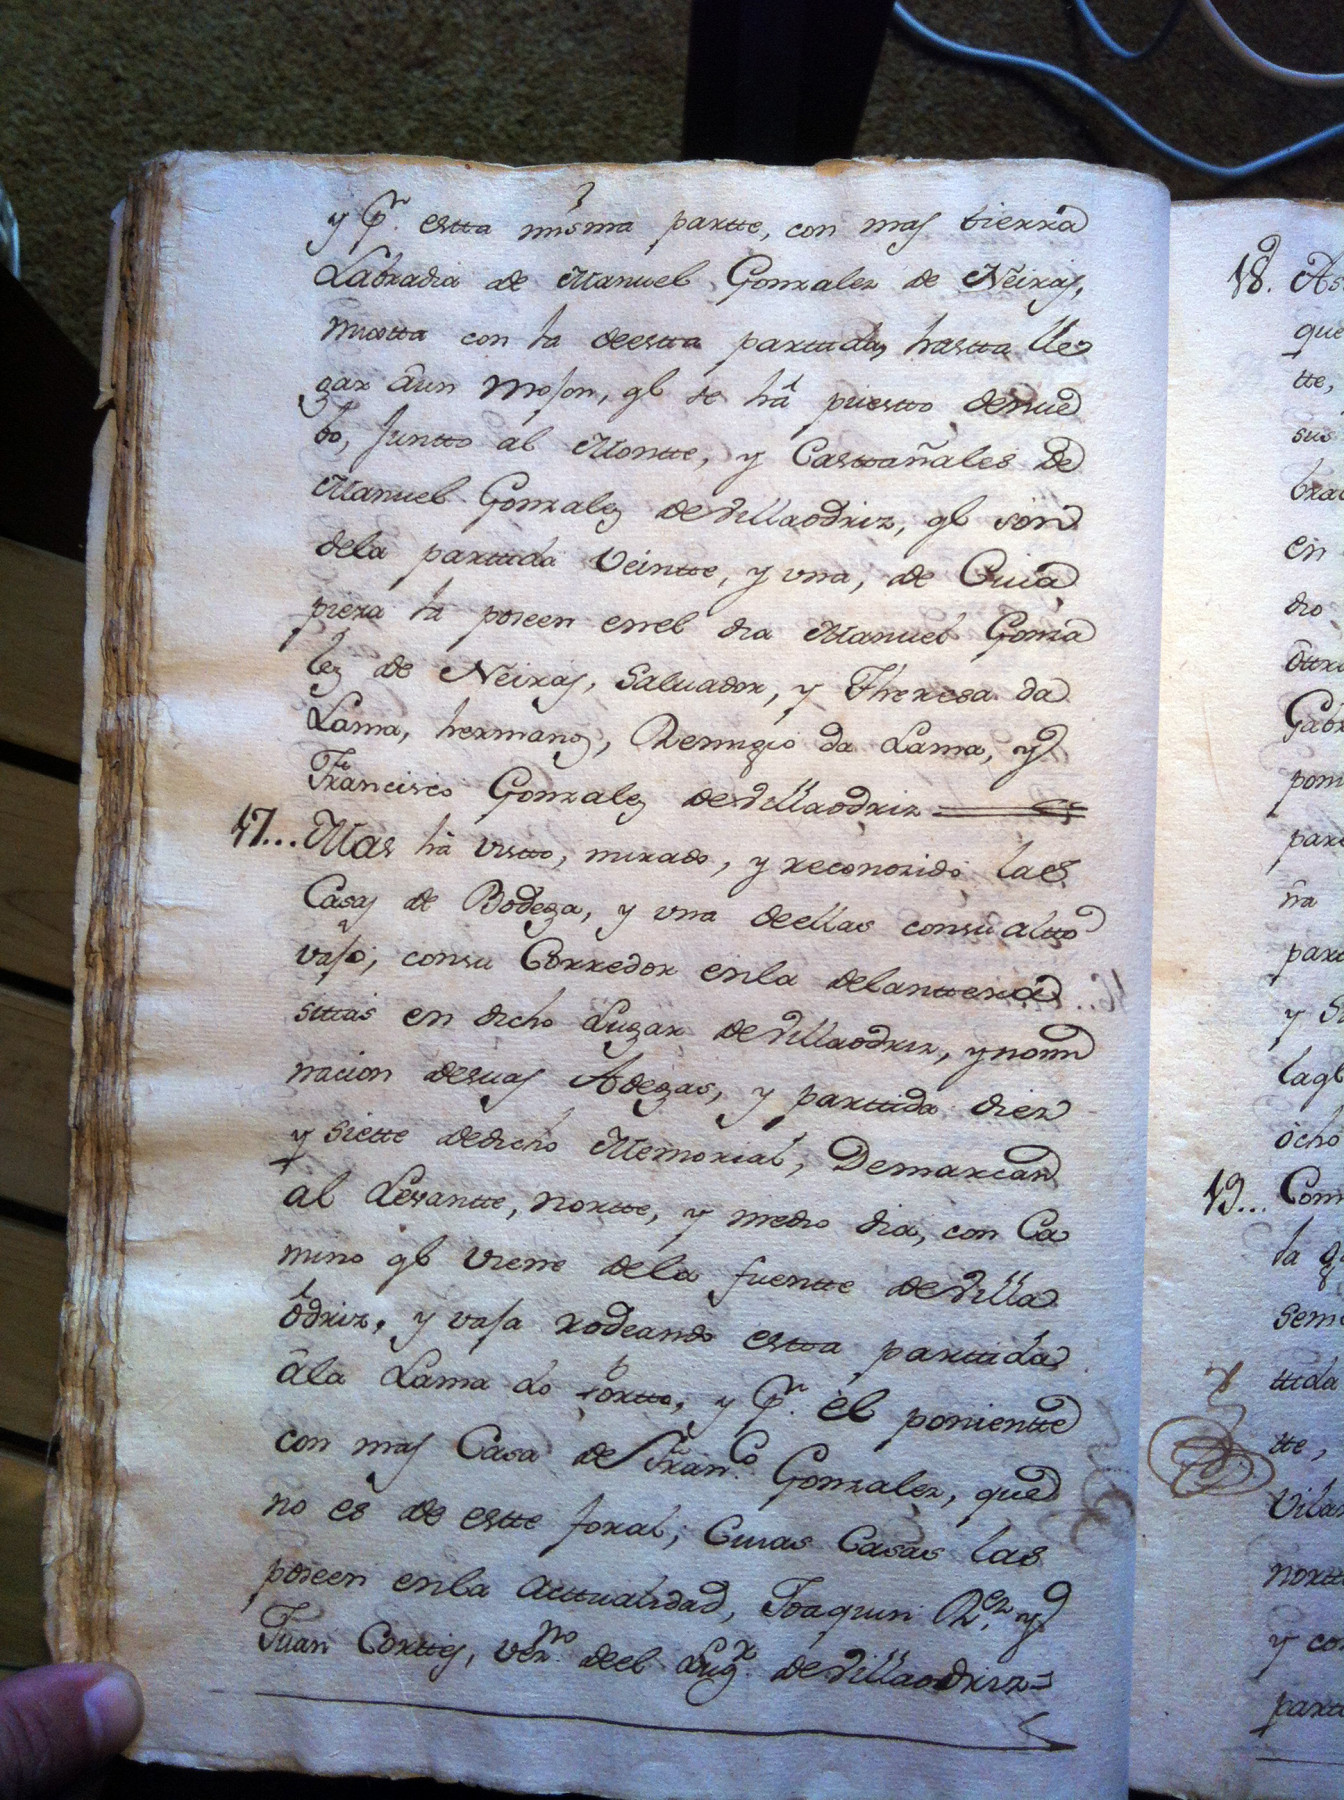 y Pr. estta misma partte, con mas tierra
Labradia de Manuel Gonzalez de Neiras,
mixtta con la deestta parttida, hastta lle
gar âun Mojon, qe se há puestto denue
bo, Juntto al Montte, y Casttañales de
Manuel Gonzalez de Villaodriz, qe son
dela parttida Veintte, y una, de Cuia
pieza la poseen enel dia Manuel Gonza
lez de Neiras, Salvador, y Theresa da
Lama, hermanos, Remigio da Lama, y
Francisco Gonzalez de Villaodriz
17... Mas há visto, mirado, y reconozido las
Casas de Bodega, y una deellas consu altto
vajo, consu Corredor enla delanttera
sittas en dicho Lugar de Villaodriz, y nomi
nacion desuas Adegas, y parttida diez
y siette dedicho Memorial, Demarcan
al Levantte, nortte, y medio dia, con Ca
mino qe viene dela fuentte de Villa
ôdriz, y vaja rodeando estta parttida
âla Lama do Portto, y Pr. él ponientte
con mas Casa de Franco. Gonzalez, que
no es de estte foral, Cuias Casas las
poseen enla acttualidad, Joaquin Rez, y
Juan Corttes, vezno. deel Lugr. de Villaodriz=
18. As
que
tte,
sus
brad
en
dio
ôttro
Gabr
pon
part
na
part
y S
laqe
ôcho
19... Com
la q
Sem
ttida
tte,
Vilar
nortt
y co
para